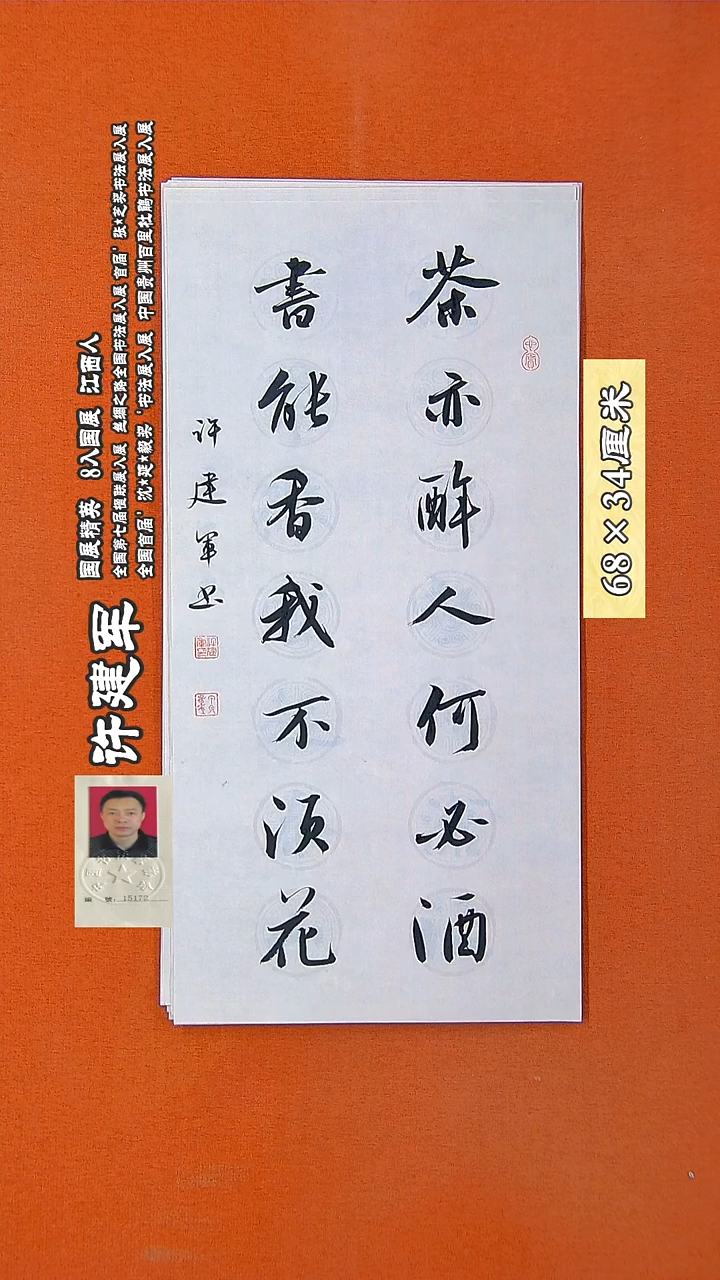 茶亦醉人何必酒
書能香我不须花
许建军书
许建军
国展精英 8入国展 江西人
全国第七届楹联展入展 丝绸之路全国书法展入展 首届'张*芝奖书法展入展
全国首届'沈*延*毅奖'书法展入展 中国贵州百里杜鹃书法展入展
68×34厘米
编 號: 15172